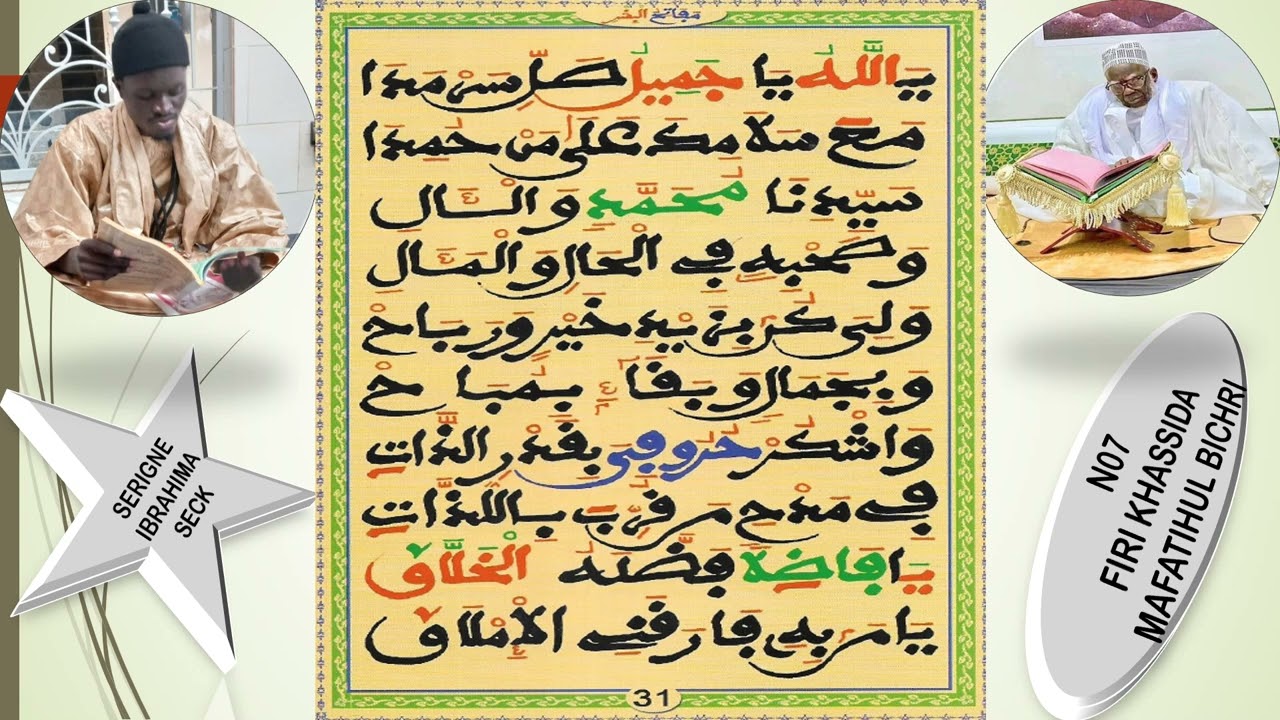 مفاتح البشر
يَاللَّهُ يَا جَمِيلُ صَلِّ سَرْمَدَا
مَعَ سَلَامِكَ عَلَى مَنْ حُمِدَا
سَيِّدِنَا مُحَمَّدٍ وَالْـَٔالِ
وَصَحْبِهِ فِي الْحَالِ وَالْمَـَٔالِ
وَلِي كُن خَيْرٍ وَرَبَاحْ
وَبِجَمَالٍ وَبَقَآءٍ بِمُبَاحْ
وَاشْكُرْ حُرُوفِي بِقَدْرِ الذَّاتِ
فِي مَدْحِ مَن قُرِّبَ بِاللَّذَّاتِ
يَا فَضَّلَهُ الْخَلَّاقُ
يَا مَن بِهِ فَارَقَنِي الْإِمْلَاقُ
31
SERIGNE
IBRAHIMA
SECK
N07
FIRI KHASSIDA
MAFATIHUL BICHRI